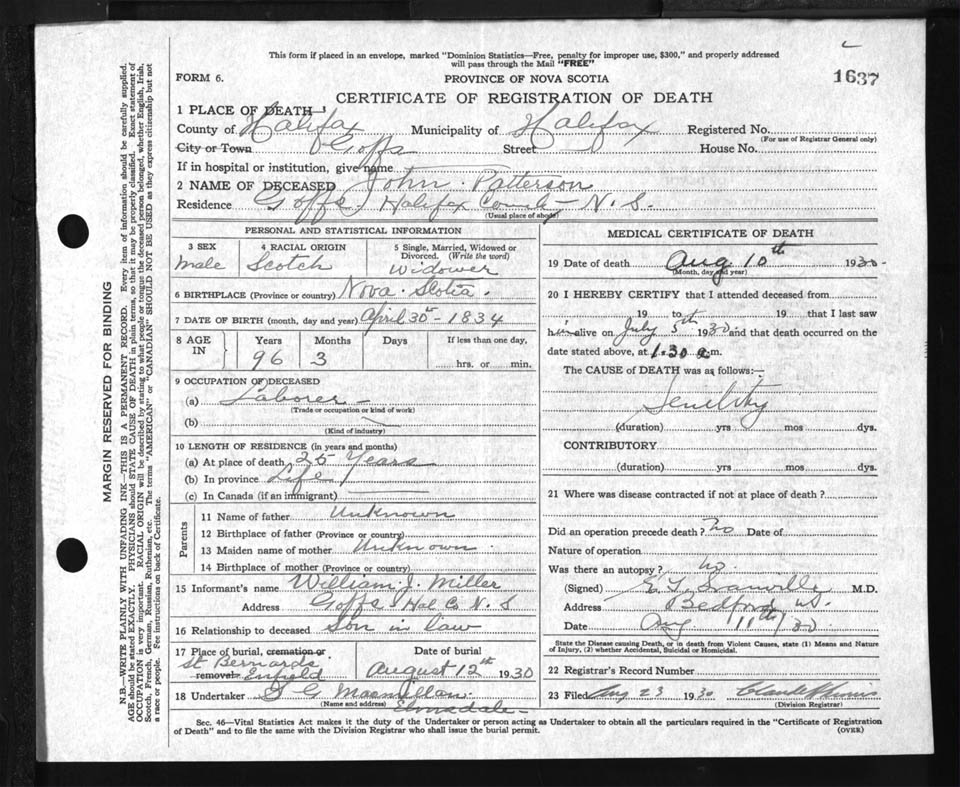 This form if placed in an envelope, marked "Dominion Statistics—Free, penalty for improper use, $300," and properly addressed
will pass through the Mail "FREE"
FORM 6.
PROVINCE OF NOVA SCOTIA
1637
CERTIFICATE OF REGISTRATION OF DEATH
1 PLACE OF DEATH
County of Halifax Municipality of Halifax Registered No.
(For use of Registrar General only)
City or Town Goffs Street House No.
If in hospital or institution, give name
2 NAME OF DECEASED John Patterson
Residence Goffs Halifax County N. S.
(Usual place of abode)
PERSONAL AND STATISTICAL INFORMATION
3 SEX
male
4 RACIAL ORIGIN
Scotch
5 Single, Married, Widowed or
Divorced. (Write the word)
Widower
6 BIRTHPLACE (Province or country) Nova Scotia.
7 DATE OF BIRTH (month, day and year) April 30th 1834
8 AGE
IN
Years
96
Months
3
Days
If less than one day,
hrs. or min.
9 OCCUPATION OF DECEASED
(a) Laborer
(Trade or occupation or kind of work)
(b)
(Kind of industry)
10 LENGTH OF RESIDENCE (in years and months)
(a) At place of death 25 Years
(b) In province Life
(c) In Canada (if an immigrant)
Parents
11 Name of father Unknown
12 Birthplace of father (Province or country)
13 Maiden name of mother Unknown
14 Birthplace of mother (Province or country)
15 Informant's name William J. Miller
Address Goffs Hal Co N. S
16 Relationship to deceased Son in Law
17 Place of burial, cremation or
removal
St Bernards
Enfield
Date of burial
August 12th 1930
18 Undertaker G G Macmillan
(Name and address) Elmsdale
MEDICAL CERTIFICATE OF DEATH
19 Date of death Aug 10th 1930
(Month, day and year)
20 I HEREBY CERTIFY that I attended deceased from
19 to 19 that I last saw
him alive on July 5th 1930 and that death occurred on the
date stated above, at 1.30 a.m.
The CAUSE of DEATH was as follows:—
Senility
(duration) yrs mos dys.
CONTRIBUTORY
(duration) yrs mos dys.
21 Where was disease contracted if not at place of death?
Did an operation precede death? No Date of
Nature of operation
Was there an autopsy? no.
(Signed) M.D.
Address Bedford NS.
Date Aug 11th/30
State the Disease causing Death, or in death from Violent Causes, state (1) Means and Nature
of Injury, (2) whether Accidental, Suicidal or Homicidal.
22 Registrar's Record Number
23 Filed Aug 23 1930
(Division Registrar)
Sec. 46—Vital Statistics Act makes it the duty of the Undertaker or person acting as Undertaker to obtain all the particulars required in the "Certificate of Registration
of Death" and to file the same with the Division Registrar who shall issue the burial permit.
(OVER)
MARGIN RESERVED FOR BINDING
N.B.—WRITE PLAINLY WITH UNFADING INK—THIS IS A PERMANENT RECORD. Every item of information should be carefully supplied.
AGE should be stated EXACTLY. PHYSICIANS should STATE CAUSE OF DEATH in plain terms, so that it may be properly classified. Exact statement of
OCCUPATION is very important. RACIAL ORIGIN will be described by stating to what people or tongue the deceased person belonged, whether English, Irish,
Scotch, French, German, Russian, Ruthenian, etc. The terms "AMERICAN" or "CANADIAN" SHOULD NOT BE USED as they express citizenship but not
a race or people. See instructions on back of Certificate.